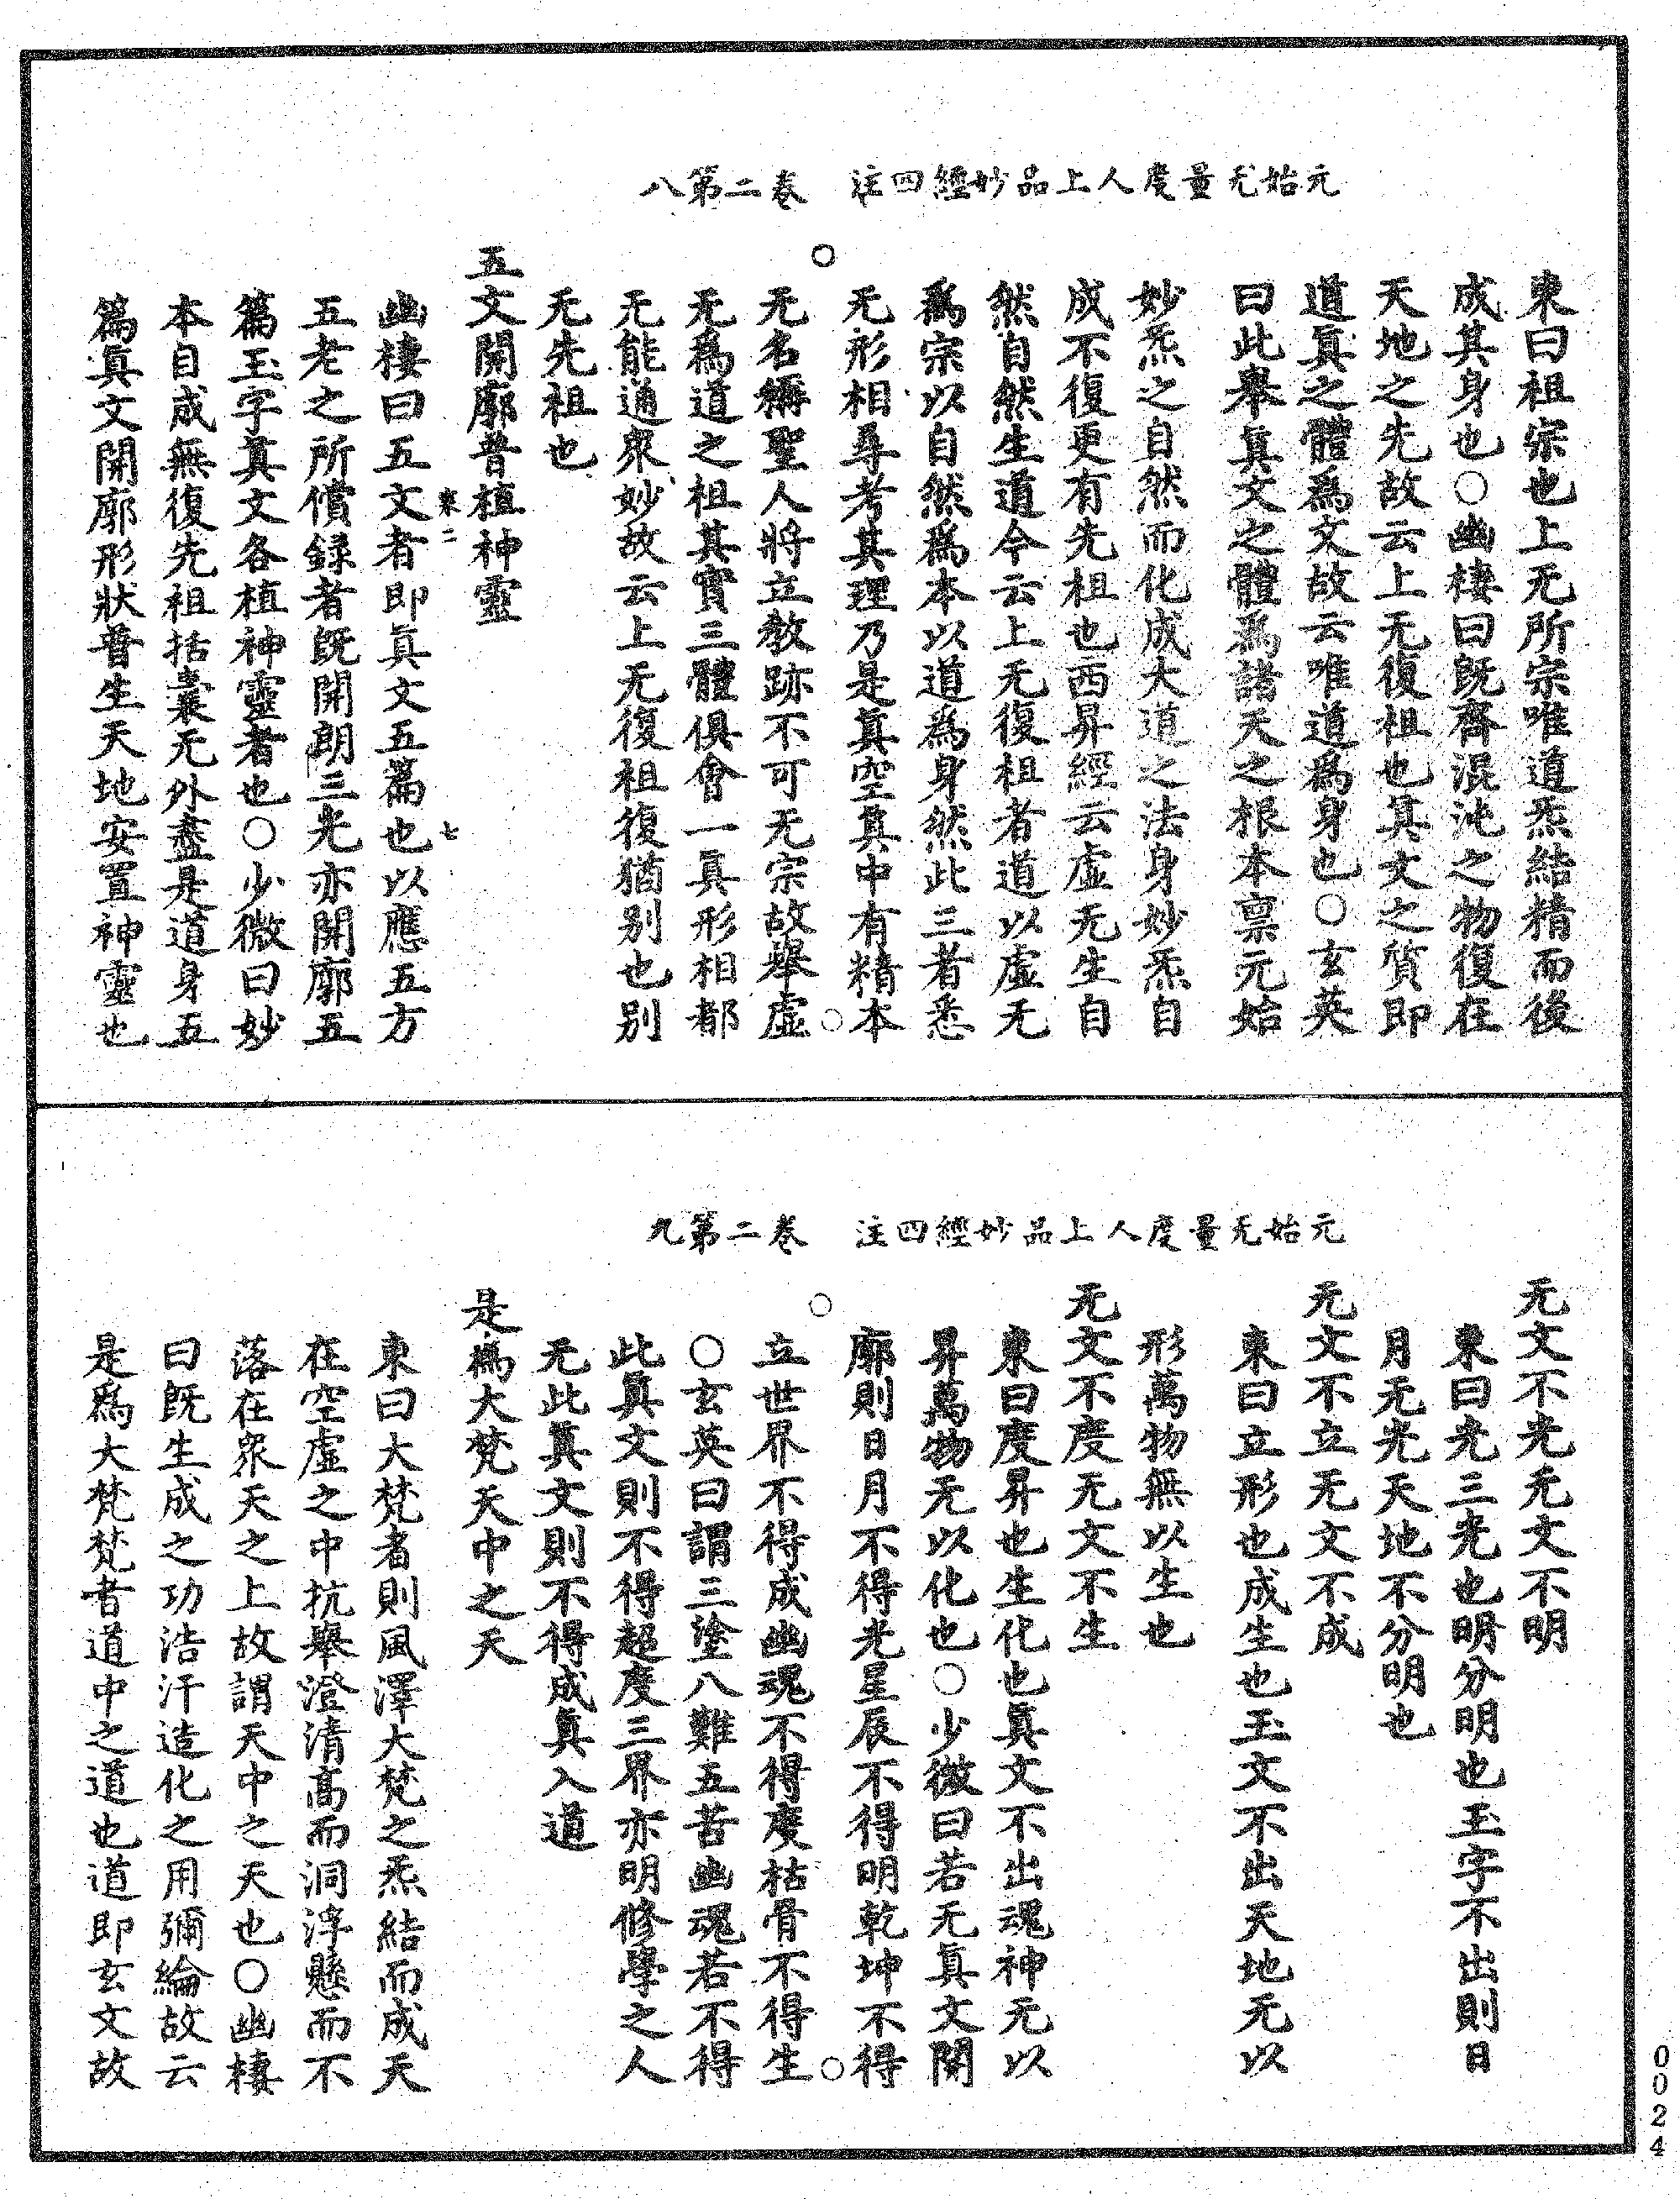 元始无量度人上品妙經四注　卷二第八
東曰祖宗也上无所宗唯道炁結精而後
成其身也○幽棲曰既齊混沌之物復在
天地之先故云上无復祖也其文之質即
道真之體爲文故云唯道爲身也○玄英
曰此舉真文之體爲諸天之根本禀元始
妙炁之自然而化成大道之法身妙炁自
成不復更有先祖也西昇經云虛无生自
然自然生道今云上无復祖者道以虛无
爲宗以自然爲本以道爲身然此三者悉
无形相尋考其理乃是真空真中有精本
无名稱聖人將立教跡不可无宗故舉虛
无爲道之祖其實三體俱會一真形相都
无能通衆妙故云上无復祖復猶別也別
无先祖也
五文開廓普植神靈
幽棲曰五文者即真文五篇也以應五方
來二　七
五老之所償録者既開朗三光亦開廓五
篇玉字真文各植神靈者也○少微曰妙
本自成無復先祖括囊无外盡是道身五
篇真文開廓形狀普生天地安置神靈也
元始无量度人上品妙經四注　卷二第九
无文不光无文不明
東曰光三光也明分明也玉字不出則日
月无光天地不分明也
无文不立无文不成
東曰立形也成生也玉文不出天地无以
形萬物無以生也
无文不度无文不生
東曰度昇也生化也真文不出魂神无以
昇萬物无以化也○少微曰若无真文開
廓則日月不得光星辰不得明乾坤不得
立世界不得成幽魂不得度枯骨不得生
○玄英曰謂三塗八難五苦幽魂若不得
此真文則不得超度三界亦明修學之人
无此真文則不得成真入道
是爲大梵天中之天
東曰大梵者則風澤大梵之炁結而成天
在空虛之中抗舉澄清高而洞浮懸而不
落在衆天之上故謂天中之天也○幽棲
曰既生成之功浩汗造化之用彌綸故云
是爲大梵梵者道中之道也道即玄文故
0024